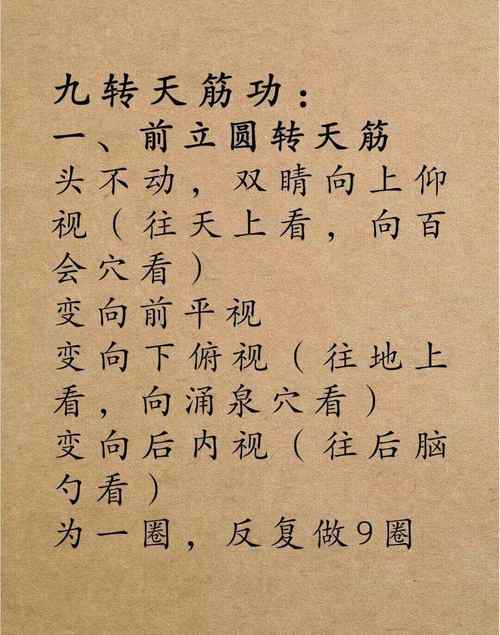 九转天筋功：
一、前立圆转天筋
头不动，双睛向上仰
视（往天上看，向百
会穴看）
变向前平视
变向下俯视（往地上
看，向涌泉穴看）
变向后内视（往后脑
勺看）
为一圈，反复做9圈